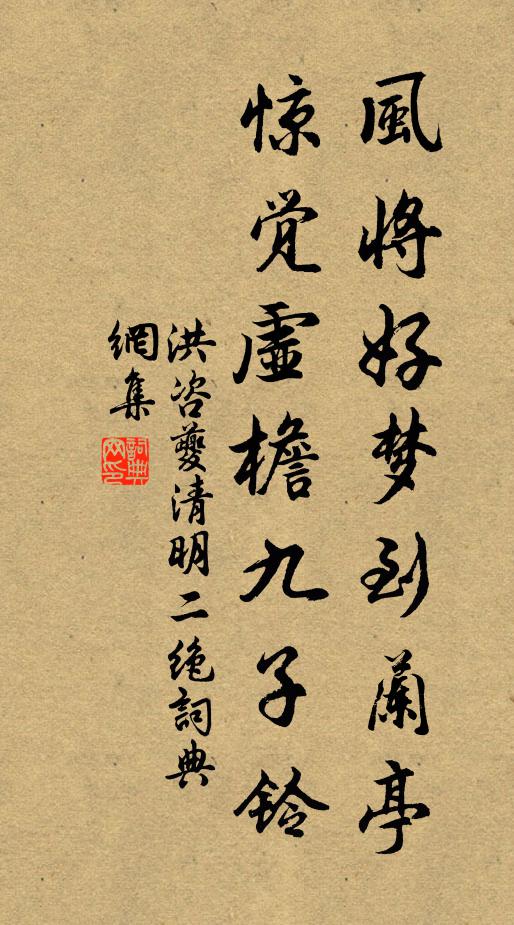 風將好梦到蘭亭
惊觉虛檐九子鈴
洪咨夔清明二绝詞典
網集
詞典網印